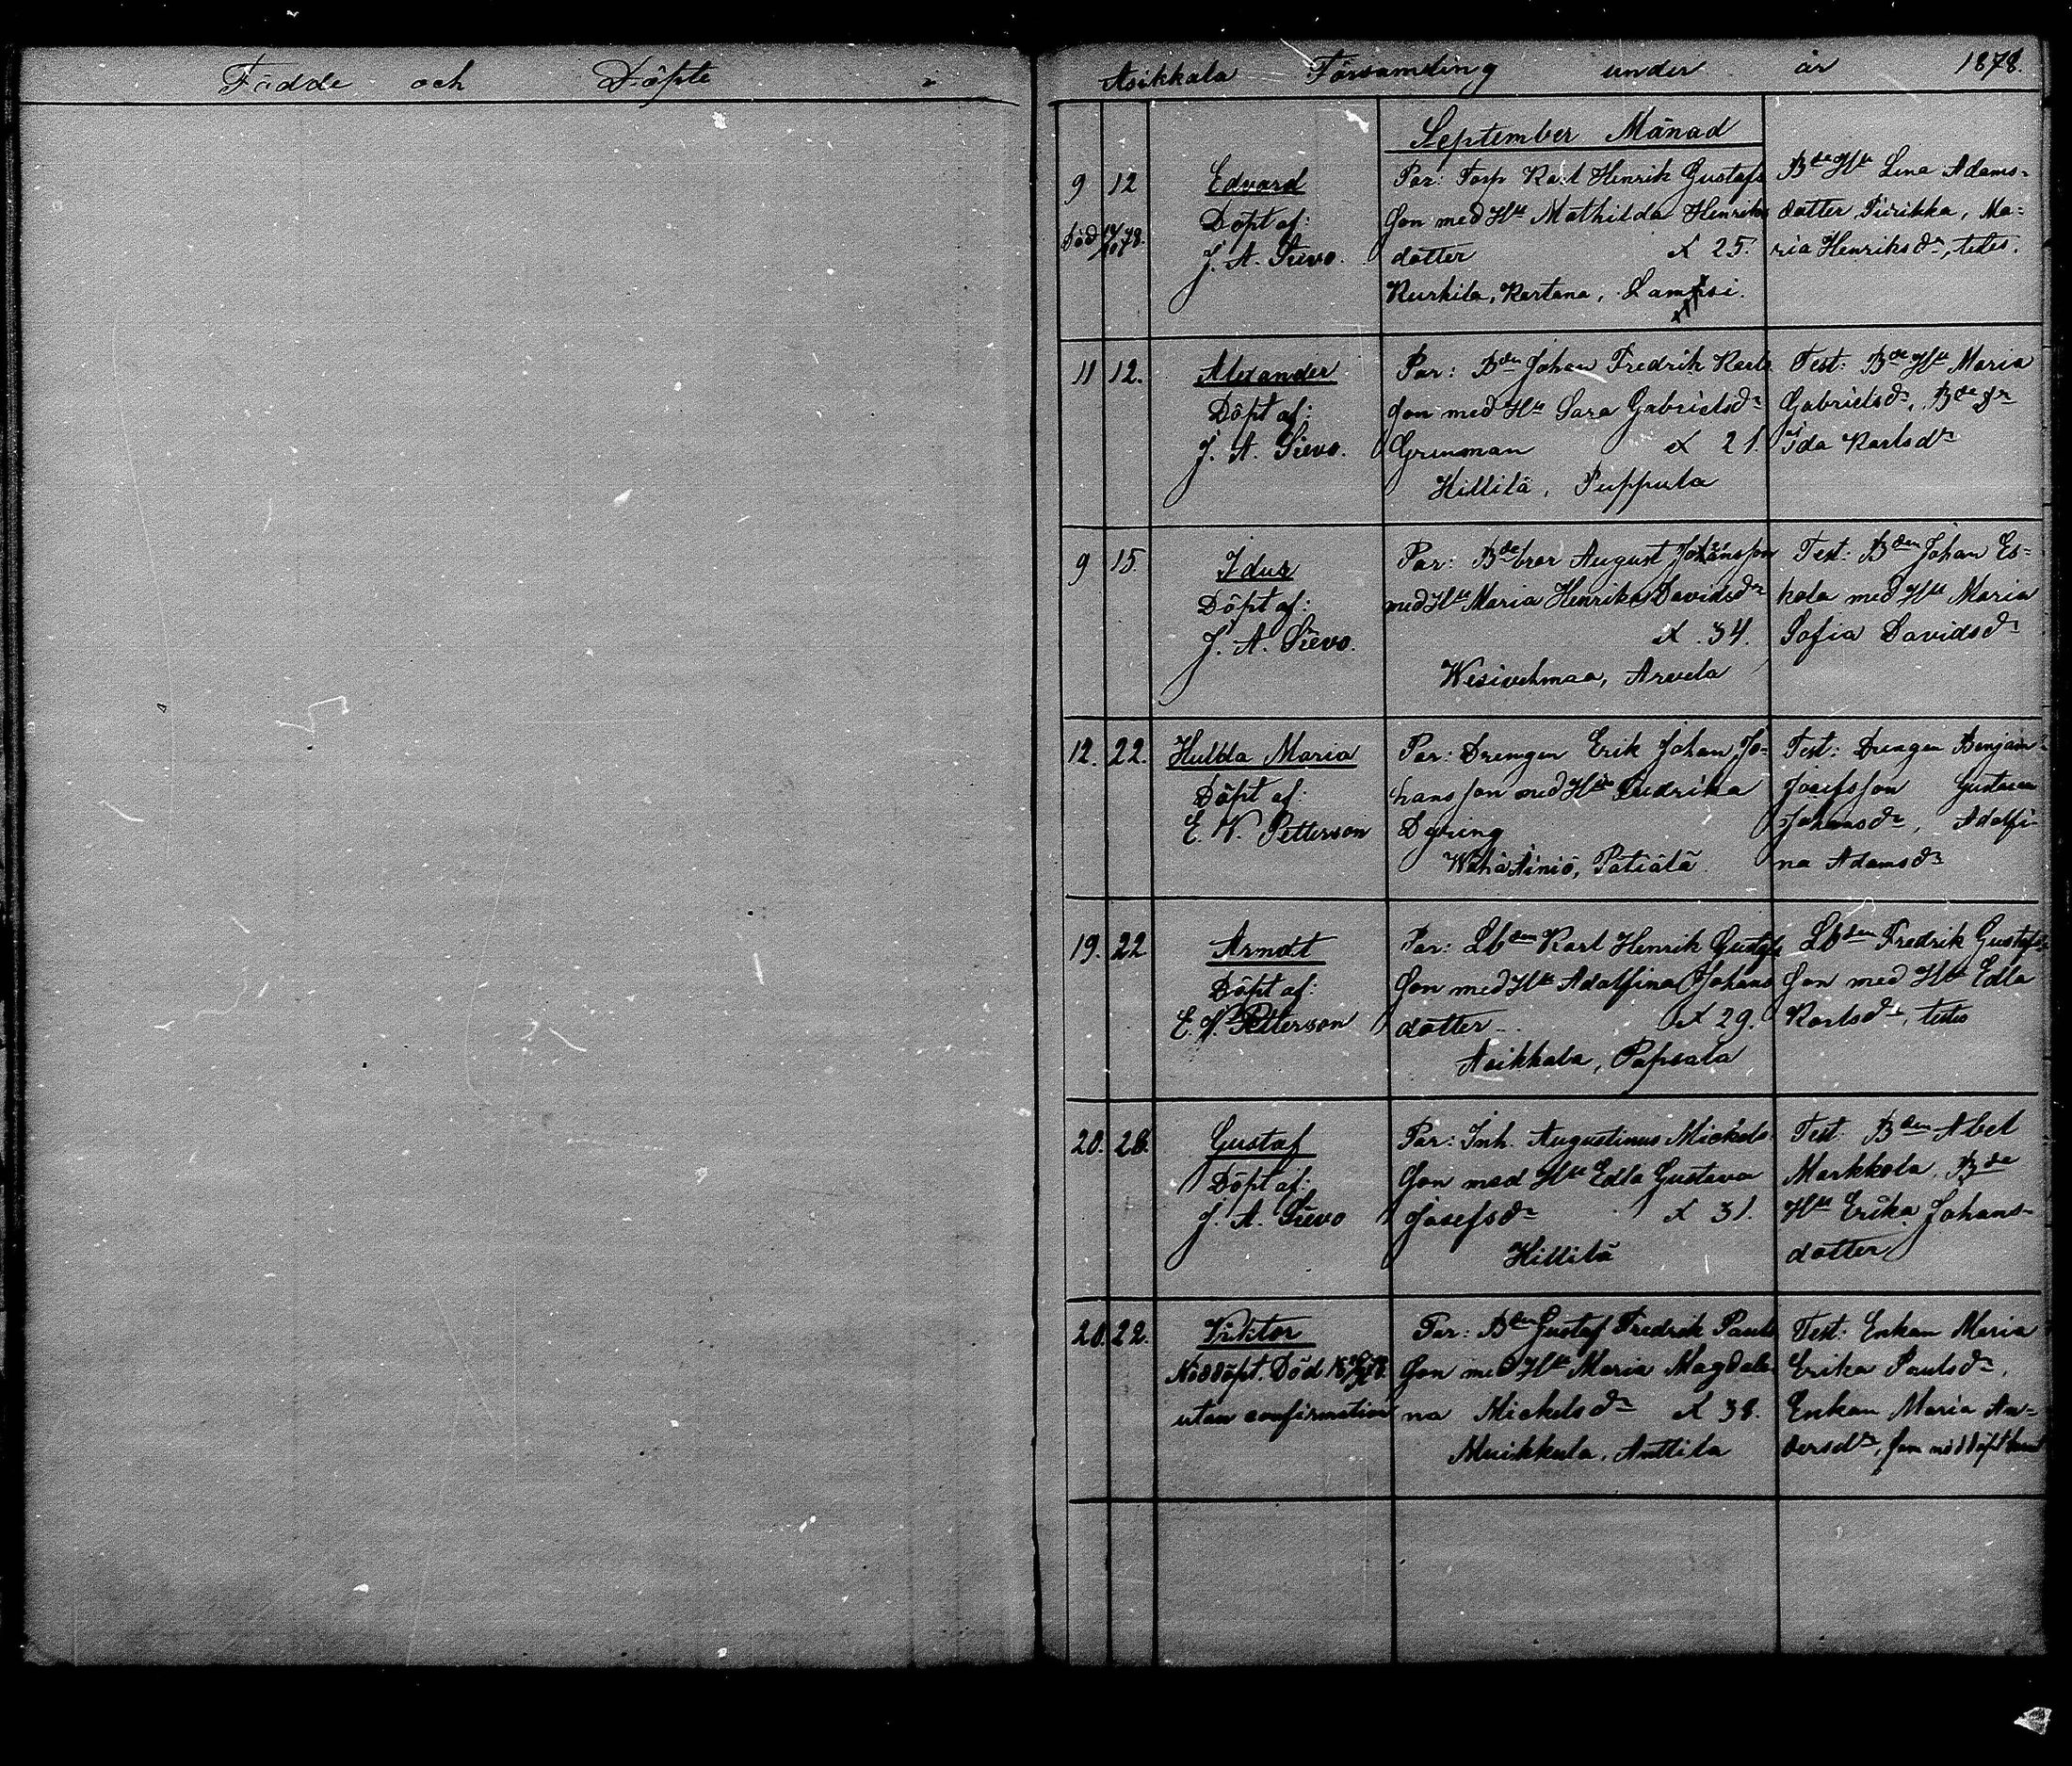 Födde och Döpte i Asikkala Församling under år 1878.
September Månad
9 12 Edvard
Död 17/10 78.
Döpt af:
J. A. Sirvo.
Par: Torp Karl Henrik Gustafs
son med Hu Mathilda Henriks
dotter x 25.
Kurhila, Kartana, Lamssi.
Bde Hu Lina Adams-
dotter Piirikka, Ma-
ria Henriksdr, testes.
11 12. Alexander
Döpt af:
J. A. Sirvo.
Par: Bden Johan Fredrik Karls
son med Hu Sara Gabrielsdr
Grenman x 21.
Hillilä, Puppula
Test: Bde Hu Maria
Gabrielsdr, Bde dr
Ida Karlsdr
9 15. Idus
Döpt af:
J. A. Sirvo.
Par: Bde bror August Johansson
med Hu Maria Henrika Davidsdr
x 34.
Wesivehmaa, Arvela
Test: Bden Johan Es-
kola med Hu Maria
Sofia Davidsdr
12. 22. Hulda Maria
Döpt af:
E. V. Petterson
Par: Drengen Erik Johan Jo-
hansson med Hu Fredrika
Dyring
Wähä Äiniö, Pätiälä
Test: Drengen Benjam
Josefsson Gustava
Johansdr, Adolfi-
na Adamsdr
19. 22 Arndt
Döpt af:
E. V. Petterson
Par: Lbden Karl Henrik Gustafs
son med Hu Adolfina Johans
dotter x 29.
Asikkala, Papsala
Lbden Fredrik Gustafs-
son med Hu Edla
Karlsdr, testes
20. 28. Gustaf
Döpt af:
J. A. Sirvo
Par: Inh. Augustinus Mickels
son med Hu Edla Gustava
Josefsdr x 31.
Hillilä
Test: Bden Abel
Markkola, Bde
Hu Erika Johans-
dotter
20. 22. Viktor
Nöddöpt. Död 78.
utan confirmation
Par: Bden Gustaf Fredrik Pauls
son med Hu Maria Magdale-
na Mickelsdr x 38.
Muikkula, Anttila
Test: Enkan Maria
Erika Paulsdr,
Enkan Maria An-
dersdr, som nöddöpt barnet